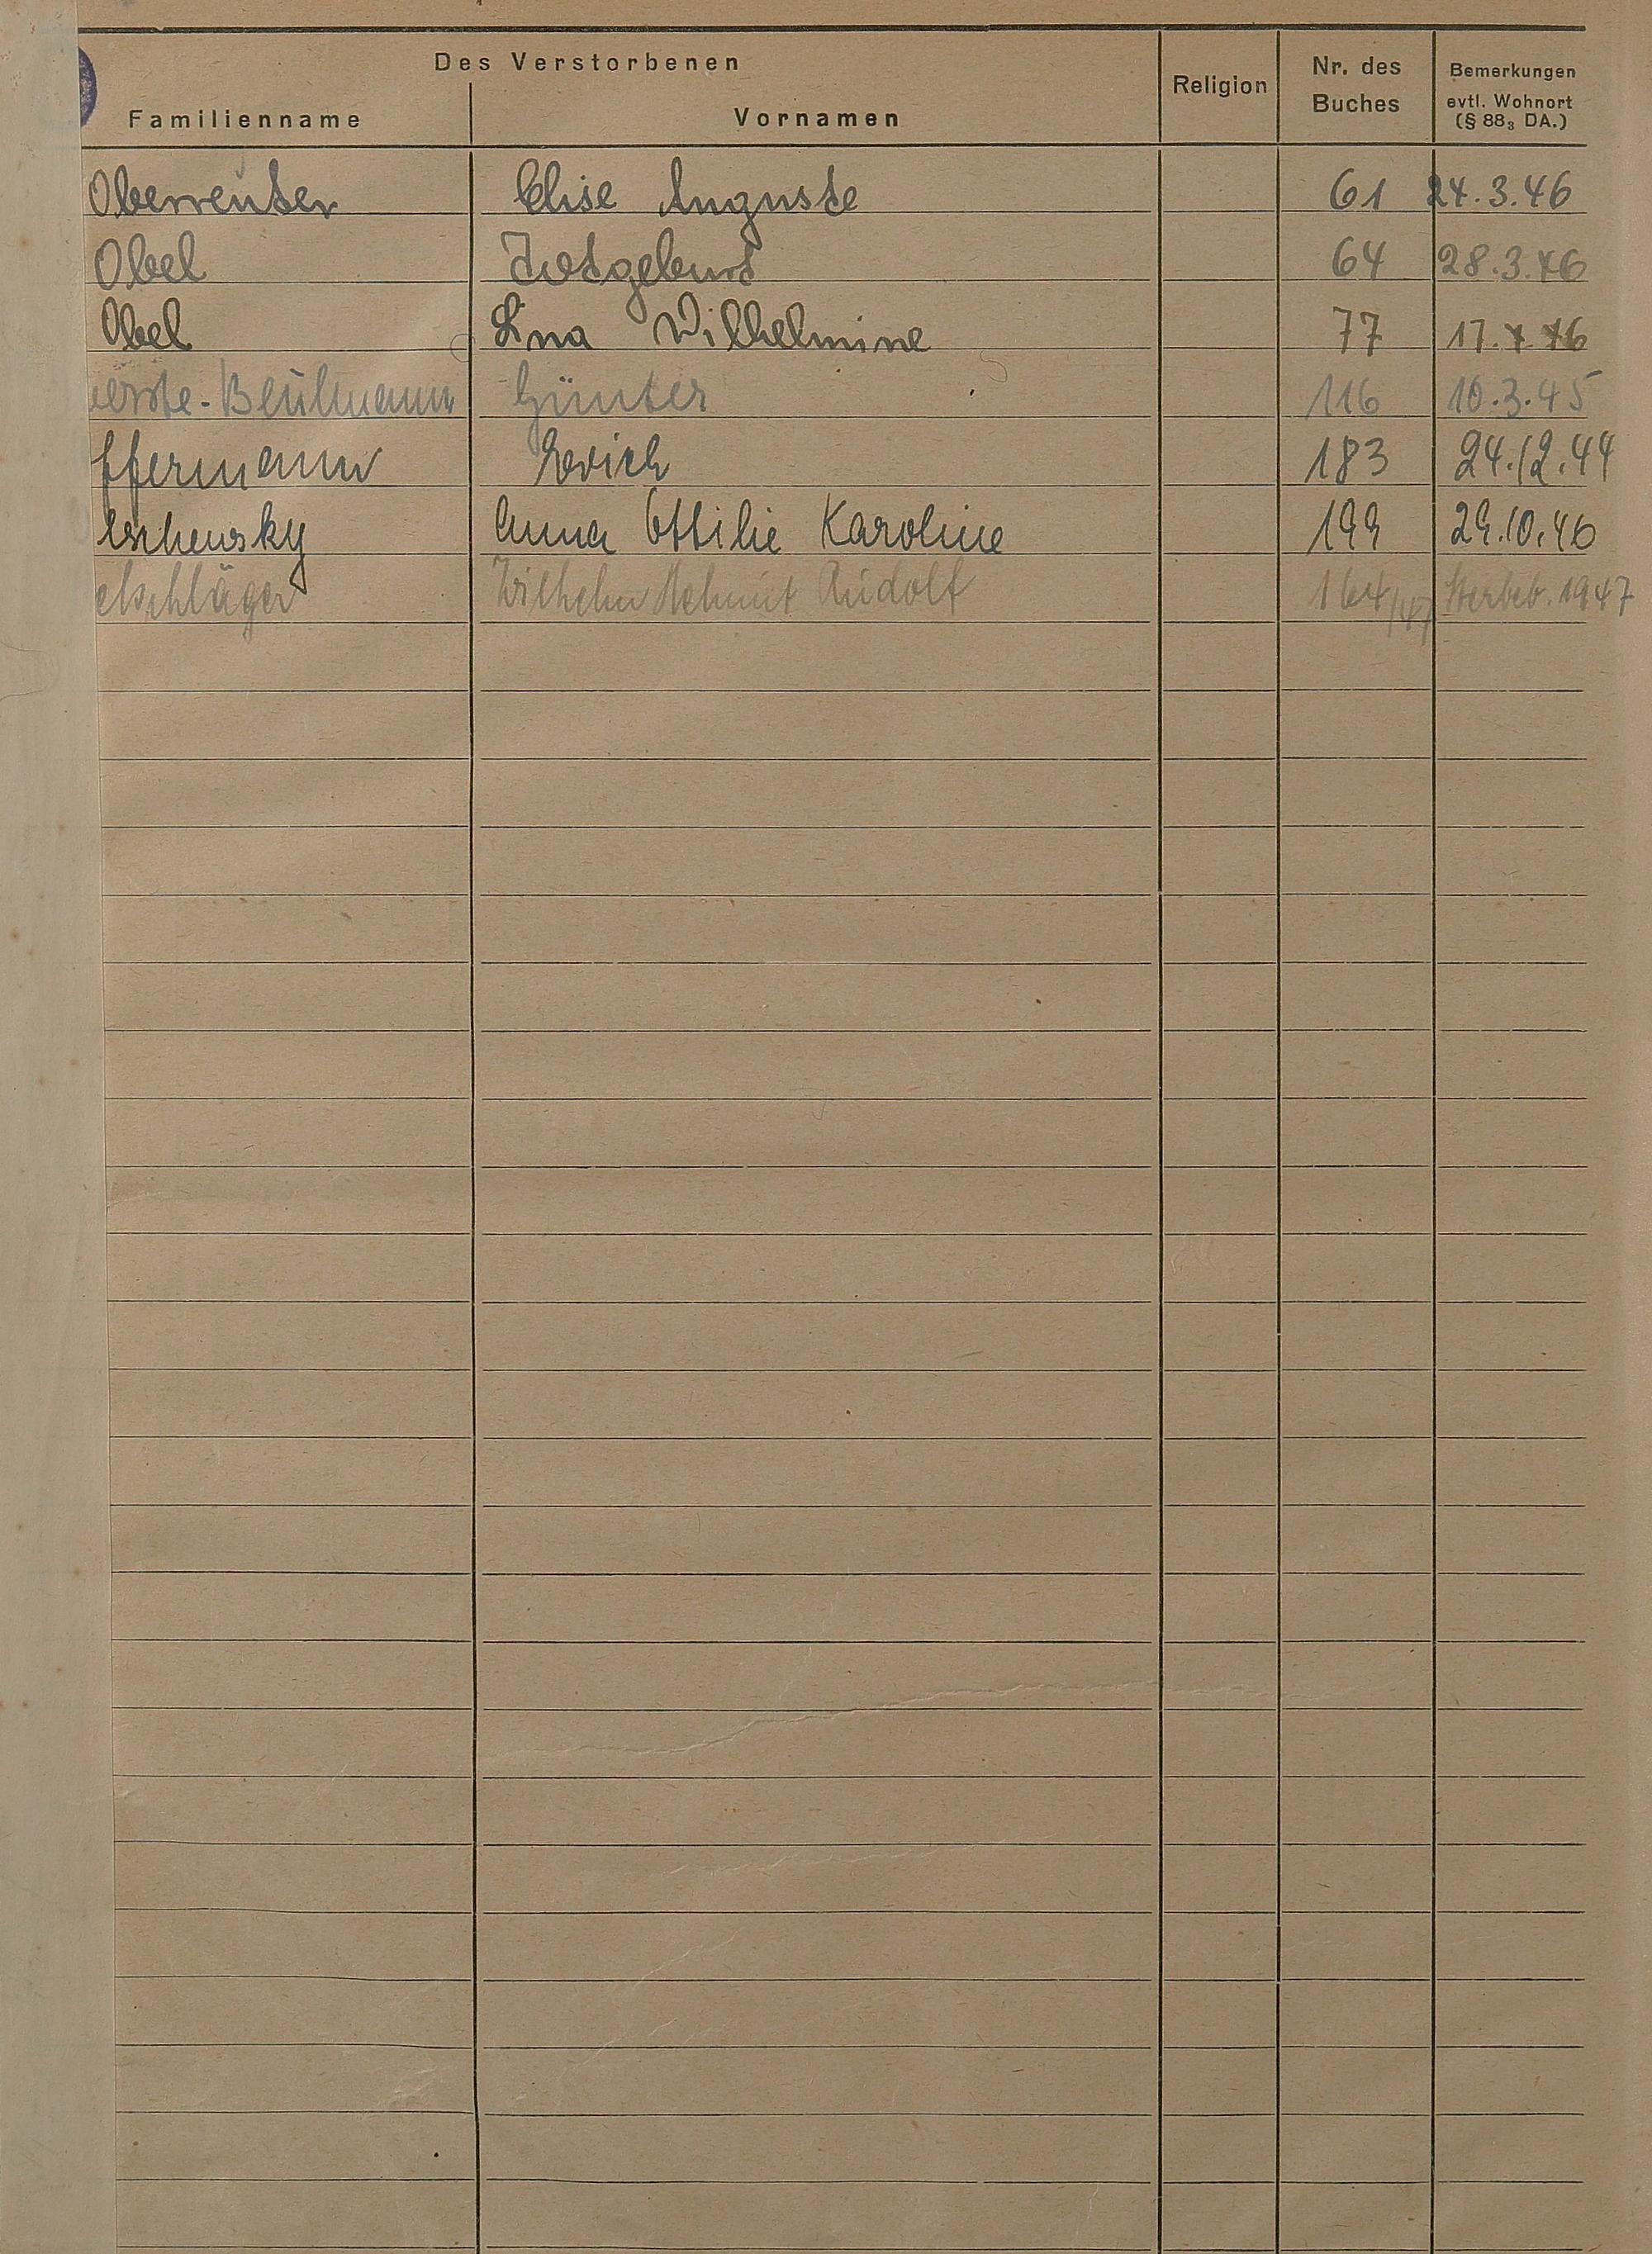 Des Verstorbenen
Familienname Vornamen Religion Nr. des Buches Bemerkungen evtl. Wohnort (§ 88₃ DA.)
Oberreuter Elise Auguste 61 24.3.46
Obel Totgeburt 64 28.3.46
Obel Lina Wilhelmine 77 17.4.46
erste-Beulmann Günter 116 10.3.45
ffermann Erich 183 24.12.44
lschewsky Anna Ottilie Karoline 199 29.10.46
elschläger Wilhelm Helmut Rudolf 164/47 Sterbeb. 1947